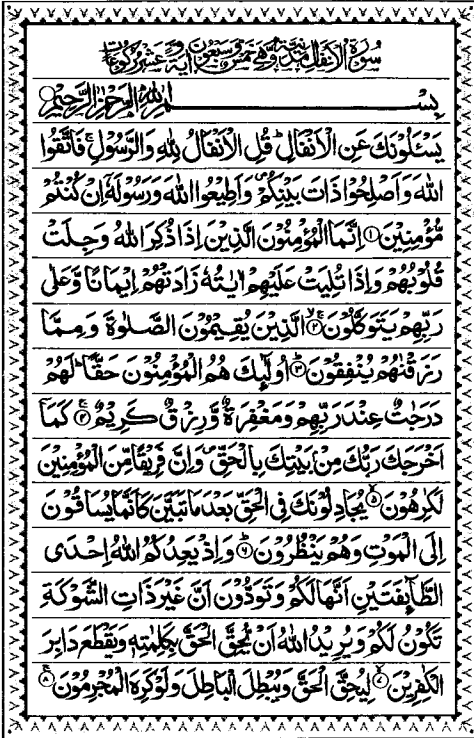 سُوْرَةُ الْاَنْفَالِ مَدَنِيَّةٌ وَّهِيَ خَمْسٌ وَّسَبْعُوْنَ اٰيَةً وَّعَشْرُ رُكُوْعَاتٍ
بِسْمِ اللهِ الرَّحْمٰنِ الرَّحِيْمِ
يَسْـَٔلُوْنَكَ عَنِ الْاَنْفَالِ ؕ قُلِ الْاَنْفَالُ لِلّٰهِ وَالرَّسُوْلِ ۚ فَاتَّقُوا
اللهَ وَاَصْلِحُوْا ذَاتَ بَيْنِكُمْ ۪ وَاَطِيْعُوا اللهَ وَرَسُوْلَهٗۤ اِنْ كُنْتُمْ
مُّؤْمِنِيْنَ ۝۱ اِنَّمَا الْمُؤْمِنُوْنَ الَّذِيْنَ اِذَا ذُكِرَ اللهُ وَجِلَتْ
قُلُوْبُهُمْ وَاِذَا تُلِيَتْ عَلَيْهِمْ اٰيٰتُهٗ زَادَتْهُمْ اِيْمَانًا وَّعَلٰى
رَبِّهِمْ يَتَوَكَّلُوْنَ ۝۲ۚۖ الَّذِيْنَ يُقِيْمُوْنَ الصَّلٰوةَ وَمِمَّا
رَزَقْنٰهُمْ يُنْفِقُوْنَ ۝۳ؕ اُولٰٓئِكَ هُمُ الْمُؤْمِنُوْنَ حَقًّا ؕ لَهُمْ
دَرَجٰتٌ عِنْدَ رَبِّهِمْ وَمَغْفِرَةٌ وَّرِزْقٌ كَرِيْمٌ ۝۴ۚ كَمَاۤ
اَخْرَجَكَ رَبُّكَ مِنْۢ بَيْتِكَ بِالْحَقِّ ۪ وَاِنَّ فَرِيْقًا مِّنَ الْمُؤْمِنِيْنَ
لَكٰرِهُوْنَ ۝۵ۙ يُجَادِلُوْنَكَ فِى الْحَقِّ بَعْدَ مَا تَبَيَّنَ كَاَنَّمَا يُسَاقُوْنَ
اِلَى الْمَوْتِ وَهُمْ يَنْظُرُوْنَ ۝۶ؕ وَاِذْ يَعِدُكُمُ اللهُ اِحْدَى
الطَّآئِفَتَيْنِ اَنَّهَا لَكُمْ وَتَوَدُّوْنَ اَنَّ غَيْرَ ذَاتِ الشَّوْكَةِ
تَكُوْنُ لَكُمْ وَيُرِيْدُ اللهُ اَنْ يُّحِقَّ الْحَقَّ بِكَلِمٰتِهٖ وَيَقْطَعَ دَابِرَ
الْكٰفِرِيْنَ ۝۷ۙ لِيُحِقَّ الْحَقَّ وَيُبْطِلَ الْبَاطِلَ وَلَوْ كَرِهَ الْمُجْرِمُوْنَ ۝۸ۚ